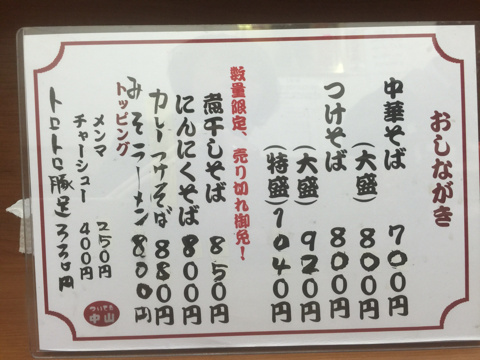 おしながき
中華そば 700円
(大盛) 800円
つけそば 800円
(大盛) 920円
(特盛) 1040円
数量限定、売り切れ御免!
煮干しそば 850円
にんにくそば 800円
カレーつけそば 880円
みそラーメン 800円
トッピング
メンマ 250円
チャーシュー 400円
トロトロ豚足 330円
ついてる
中山